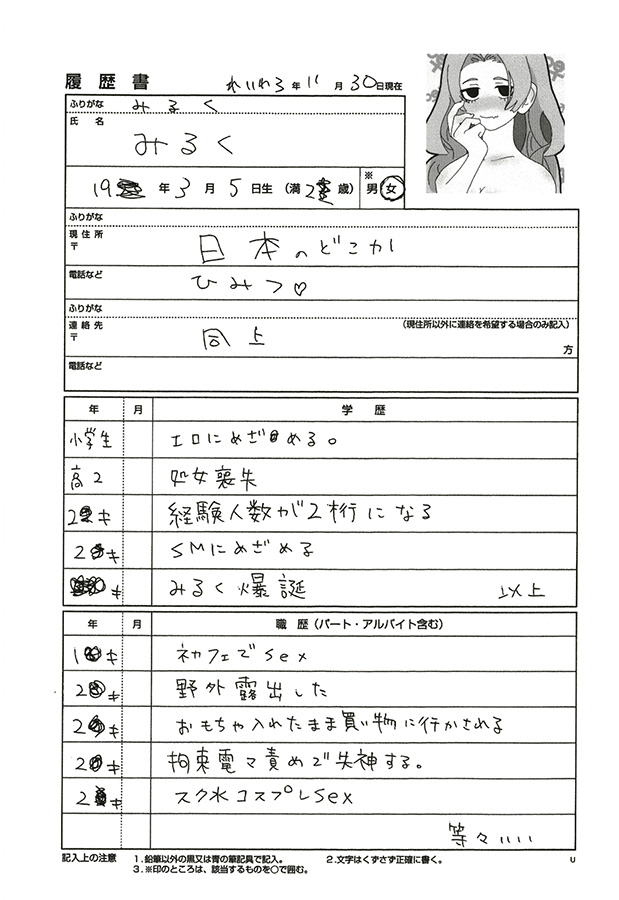 履歴書
れいわ3年11月30日現在
ふりがな みるく
氏名
みるく
19 年3月5日生(満2 歳)
※
男女
ふりがな
現住所
〒
日本のどこか
電話など
ひみつ♡
ふりがな
連絡先
(現住所以外に連絡を希望する場合のみ記入)
〒
同上
方
電話など
年 月 学歴
小学生 エロにめざめる。
高2 処女喪失
2 才 経験人数が2桁になる
2 才 SMにめざめる
才 みるく爆誕 以上
年 月 職歴(パート・アルバイト含む)
1 才 ネカフェでsex
2 才 野外露出した
2 才 おもちゃ入れたまま買い物に行かされる
2 才 拘束電マ責めで失神する。
2 才 スク水コスプレsex
等々‥‥
記入上の注意 1.鉛筆以外の黒又は青の筆記具で記入。 2.文字はくずさず正確に書く。
3.※印のところは、該当するものを○で囲む。
U